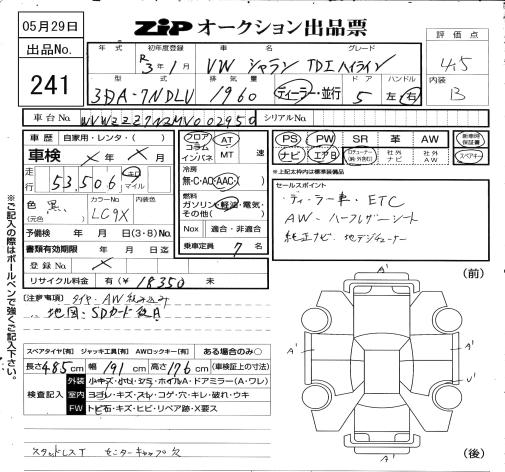 05月29日
ZIP オークション出品票
評価点
4.5
内装
B
出品No.
241
年式 初年度登録 車名 グレード
R3年1月 VW シャラン TDIハイライン
型式 排気量 ドア ハンドル
3DA-7NDLU 1960 ディーラー・並行 5 左・右
車台No. WVWZZZ7NZMV002950
シリアルNo.
車歴 自家用・レンタ・( )
車検 × 年 × 月
走行 53,506 キロ マイル
色(元色) 黒 カラーNo. LC9X 内装色
予備検 年 月 日(3・8)No.
書類有効期限 年 月 日迄
登録No. ×
リサイクル料金 有(¥18350 未
フロア コラム インパネ
AT MT 速
冷房
無・C・AC・AAC・( )
燃料
ガソリン・軽油・電気・その他( )
Nox 適合・非適合
乗車定員 7 名
PS PW SR 革 AW
ナビ エアB 社外ナビ 社外AW
新車時保証書
スペアキー
*上記太枠内は標準装備品
セールスポイント
・ディーラー車・ETC
AW・ハーフレザーシート
純正ナビ・地デジチューナー
[注意事項] タイヤ・AW組み込み
地図・SDカード
スペアタイヤ[有] ジャッキ工具[有] AWロックキー[有] ある場合のみ○
長さ485cm 幅191cm 高さ176cm (車検証上の寸法)
検査記入
外装 小キズ・小U・シミ・ホイルA・ドアミラー(A・ワレ)
室内 ヨゴレ・キズ・スレ・コゲ・穴・キレ・破れ・ウキ
FW トビ石・キズ・ヒビ・リペア跡・X要ス
スタッドレスT センターキャップ欠
※ご記入の際はボールペンで強くご記入下さい。
(前)
A'
A'
A'
A'
U'
A'
(後)